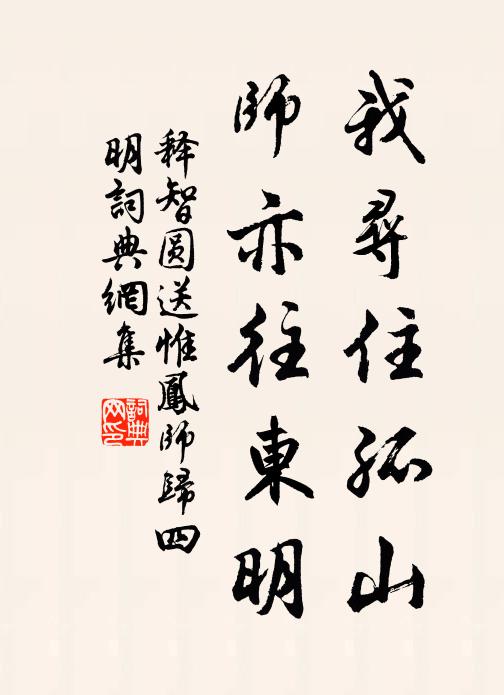 我尋住孤山
師亦往東明
释智圓送惟鳳師歸四
明詞典網集
詞典
网印